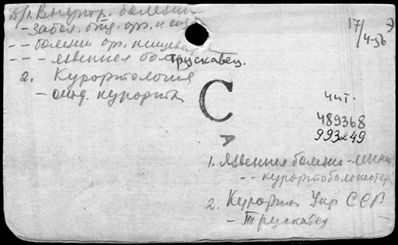 1. Внутр. болезни
- забол. отд. орг. и сист.
-- болезни орг. пищевар.
--- язвенная бол.
Трускавец.
2. Курортология
- отд. курорты
17/4-56
Э
С
А
чит.
489368
993249
1. Язвенная болезнь -
-- курортобальнеотер
2. Курорты Укр ССР
- Трускавец